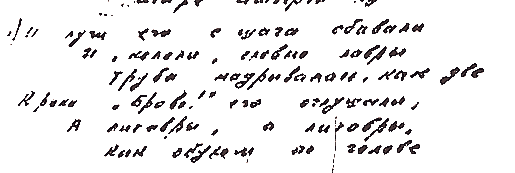 И лучи его с шага сбивали
И кололи, словно лавры
Труба надрывалась, как две
Крики "Браво!" его оглушали,
А литавры, а литавры,
как обухом по голове